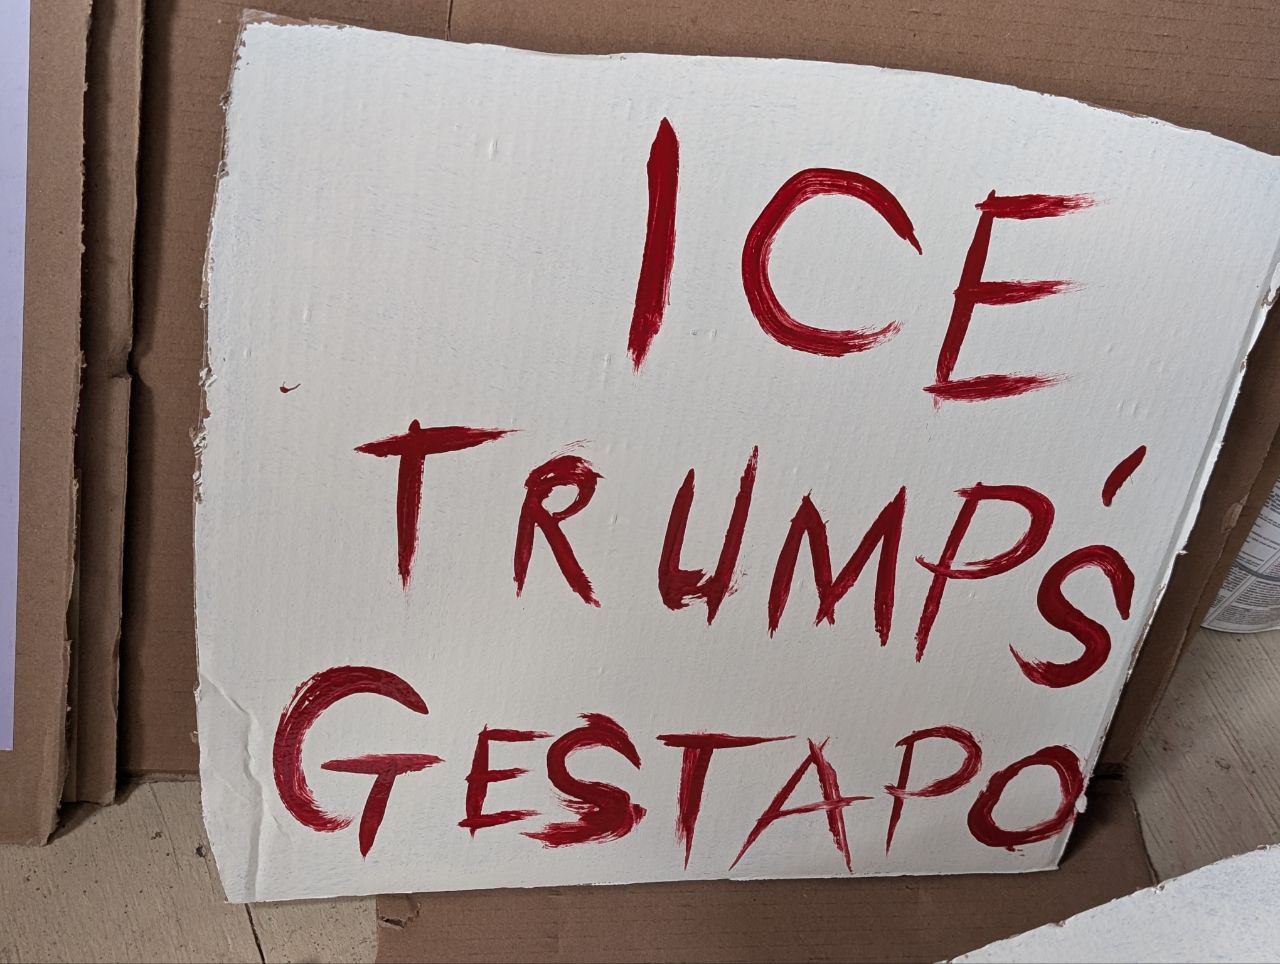 ICE
TRUMP'S
GESTAPO